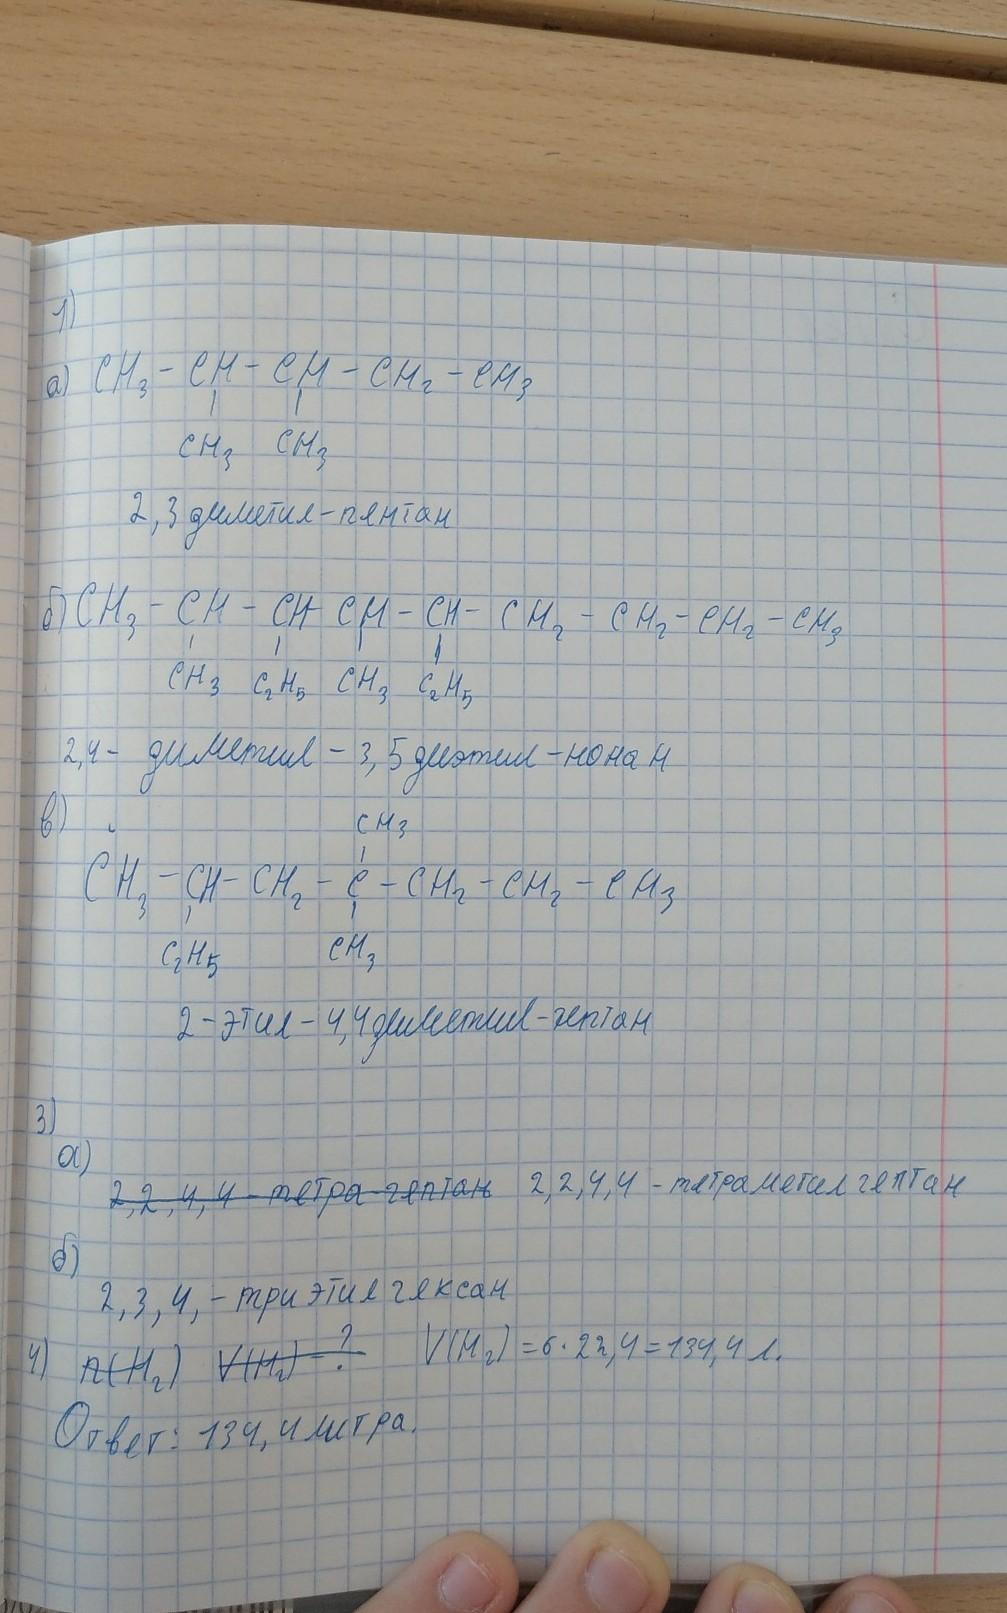 1)
а) CH₃ - CH - CH - CH₂ - CH₃
CH₃ CH₃
2,3 диметил-пентан
б) CH₃ - CH - CH CH - CH - CH₂ - CH₂ - CH₂ - CH₃
CH₃ C₂H₅ CH₃ C₂H₅
2,4 - диметил - 3,5 диэтил - нонан
в) CH₃
CH₃ - CH - CH₂ - C - CH₂ - CH₂ - CH₃
C₂H₅ CH₃
2 - этил - 4,4 диметил - гептан
3)
а)
2,2,4,4 - тетра-гептан 2,2,4,4 - тетраметил гептан
б)
2,3,4, - триэтил гексан
4) n(H₂) V(H₂) - ? V(H₂) = 6 · 22,4 = 134,4 л.
Ответ: 134,4 литра.